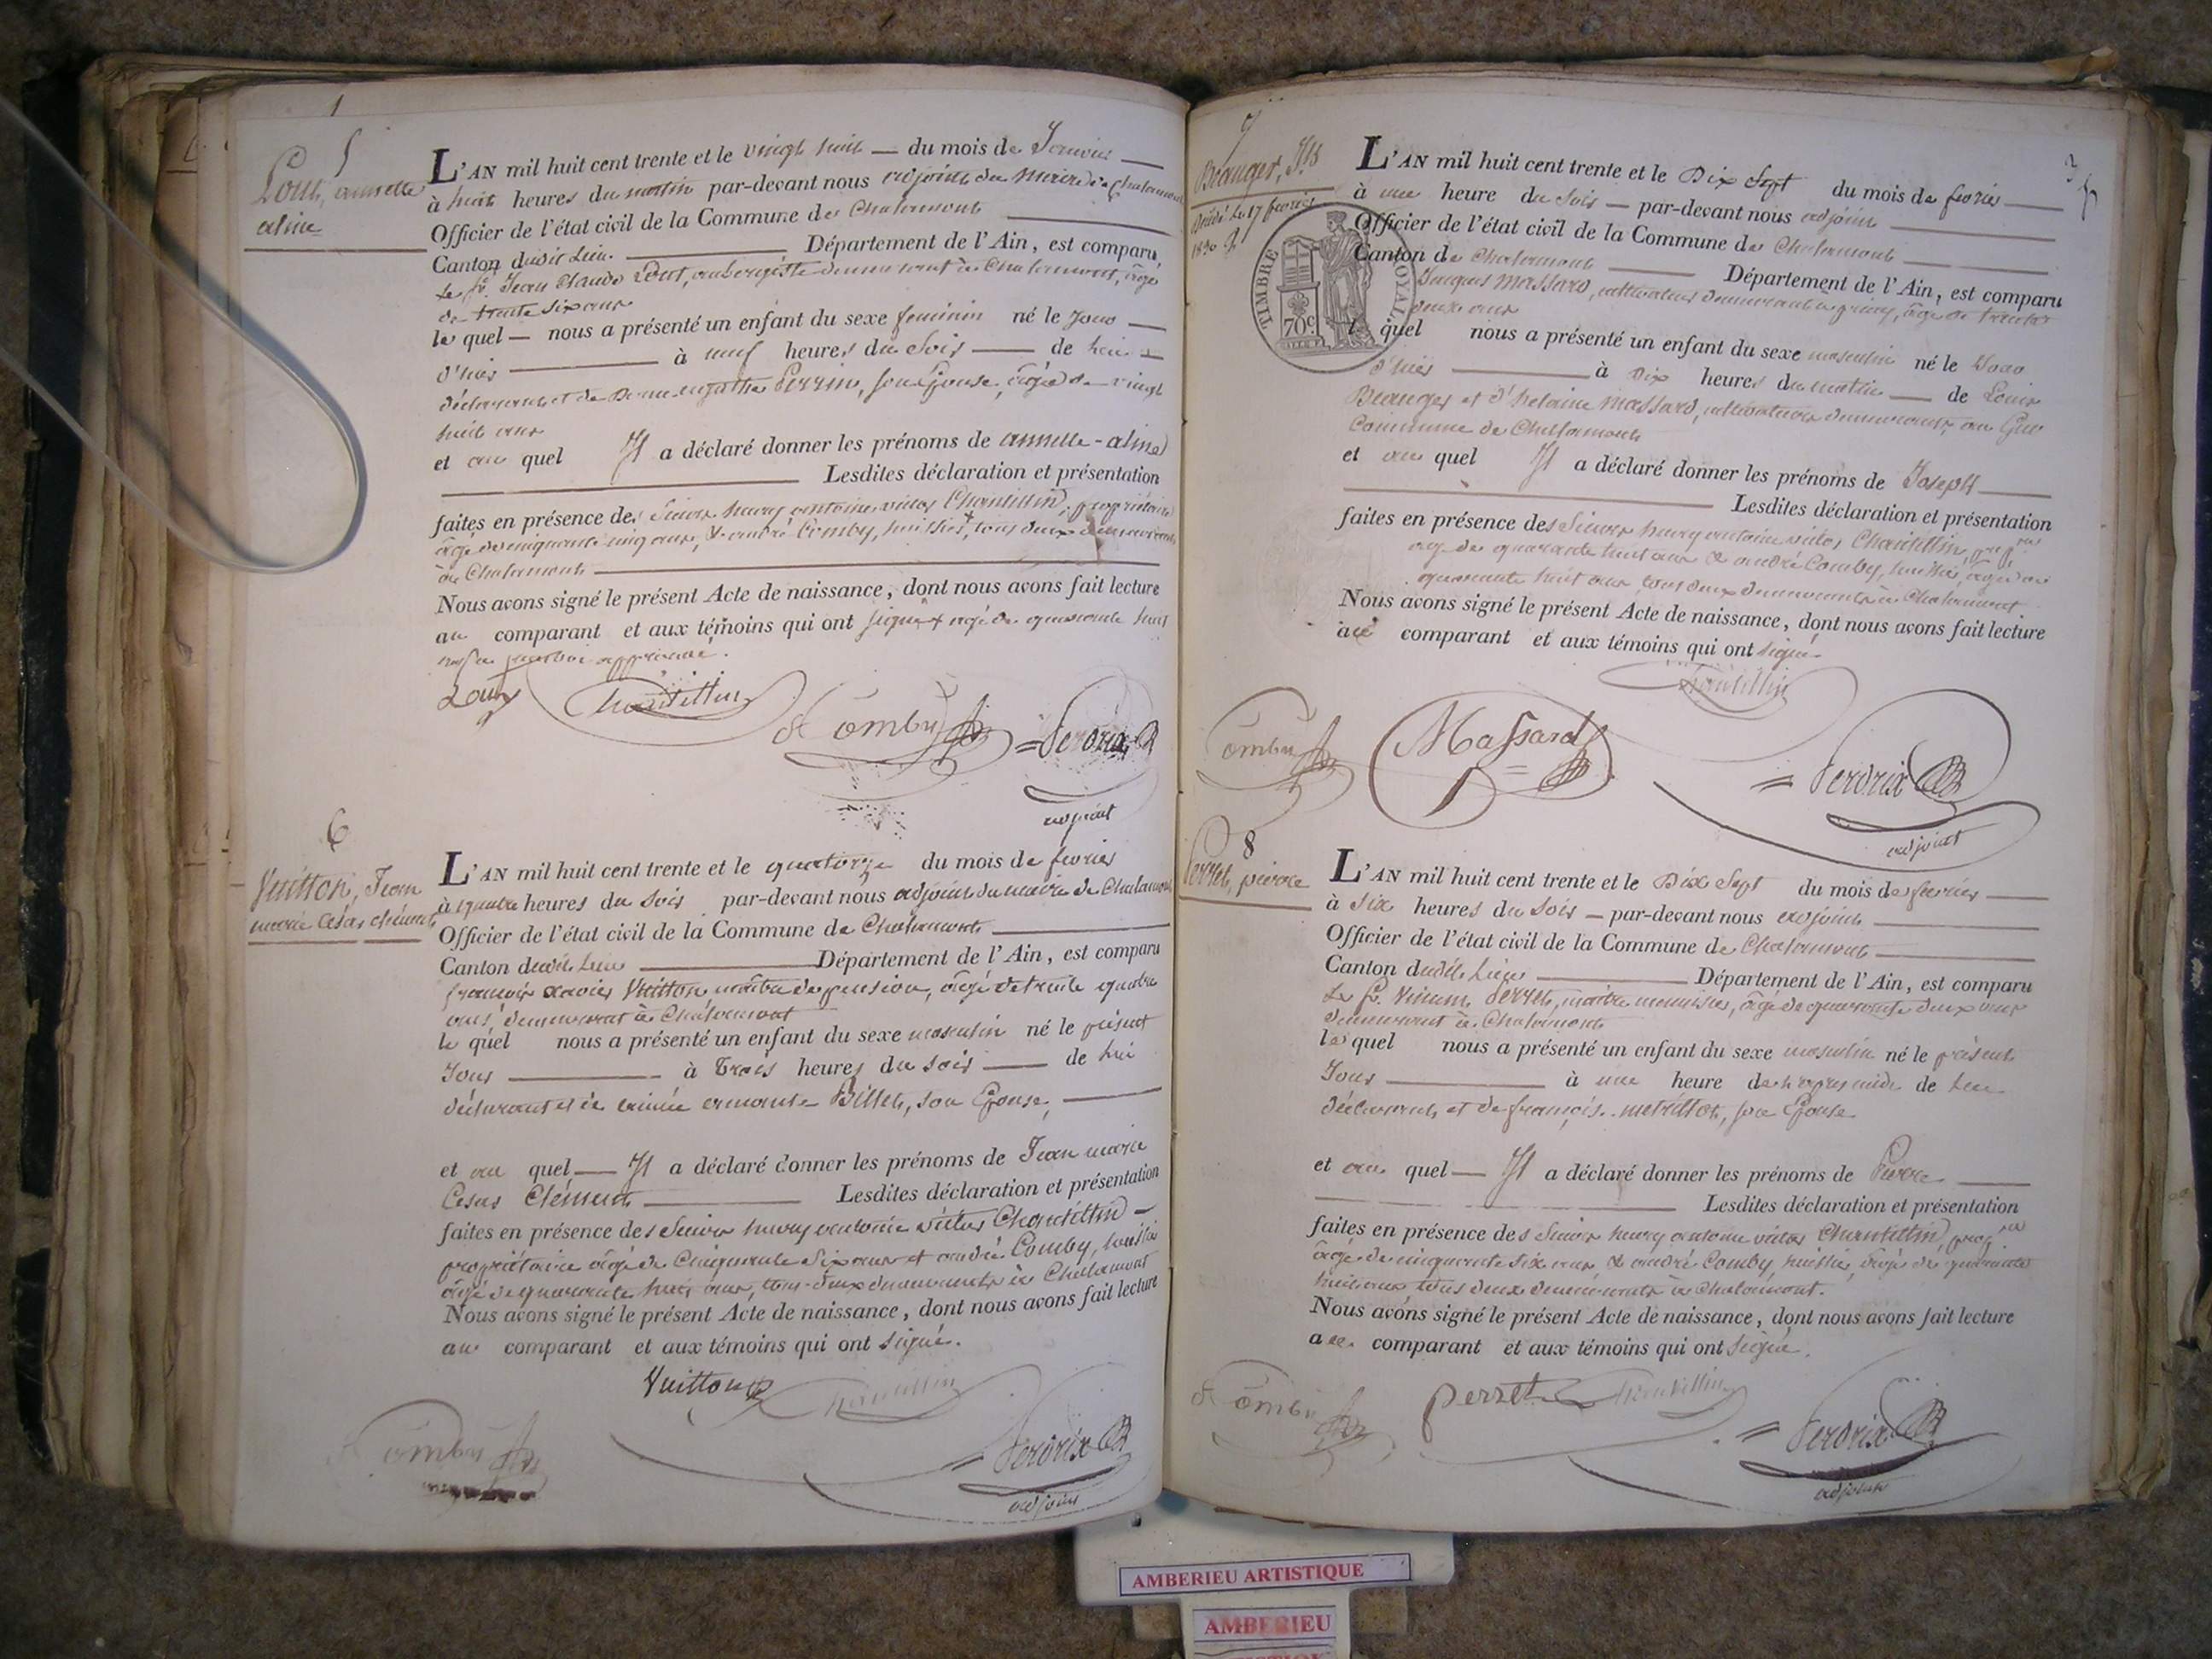 1
5
Louh, annette
aline
L'AN mil huit cent trente et le vingt huit — du mois de Janvier —
à huit heures du matin par-devant nous adjoint du maire de Chalamont
Officier de l'état civil de la Commune de Chalamont
Canton dudit Lieu Département de l'Ain, est comparu
le sr. Jean Claude, aubergiste demeurant à Chalamont, âgé
de trente six ans
le quel — nous a présenté un enfant du sexe feminin né le jour —
d'hier à neuf heures du Soir — de lui
déclarant et de agathe Perrin, son Epouse, âgée de vingt
huit ans
et au quel Il a déclaré donner les prénoms de annette-aline
Lesdites déclaration et présentation
faites en présence des Sieurs henry antoine victor Chantellin, propriétaire
âgé de cinquante cinq ans, & andré Comby, huissier + tous deux demeurants
à Chalamont
Nous avons signé le présent Acte de naissance, dont nous avons fait lecture
au comparant et aux témoins qui ont signé + âgé de quarante huit
approuvé.
Chantellin Comby Perdrix
adjoint
6
Vuitton, Jean
marie César clément
L'AN mil huit cent trente et le quatorze du mois de fevrier
à quatre heures du soir par-devant nous adjoint du maire de Chalamont
Officier de l'état civil de la Commune de Chalamont
Canton dudit Lieu Département de l'Ain, est comparu
françois xavier Vuitton, maître de pension, âgé de trente quatre
ans, demeurant à Chalamont
le quel nous a présenté un enfant du sexe masculin né le présent
Jour à trois heures du soir — de lui
déclarant et de Billet, son Epouse,
et au quel — Il a déclaré donner les prénoms de Jean marie
Cesar Clément Lesdites déclaration et présentation
faites en présence des Sieurs henry antoine victor Chantellin —
propriétaire âgé de Cinquante Six ans et andré Comby, huissier
âgé de quarante huit ans, tous deux demeurants à Chalamont
Nous avons signé le présent Acte de naissance, dont nous avons fait lecture
au comparant et aux témoins qui ont signé.
Vuitton Chantellin
Comby Perdrix
adjoint
7
Béanger, Jh
Décédé le 17 fevrier
1830
TIMBRE ROYAL
70c
L'AN mil huit cent trente et le Dix Sept du mois de fevrier —
à une heure du Soir — par-devant nous adjoint
Officier de l'état civil de la Commune de Chalamont
Canton de Chalamont Département de l'Ain, est comparu
Jacques Massard, cultivateur demeurant à, âgé de trente
deux ans
le quel nous a présenté un enfant du sexe masculin né le Jour
d'hier à Dix heures du matin — de Louis
Béanger et d'helaine Massard, cultivateurs demeurants au
Commune de Chalamont
et au quel Il a déclaré donner les prénoms de Joseph
Lesdites déclaration et présentation
faites en présence des Sieurs henry antoine victor Chantellin, propre
âgé de quarante huit ans & andré Comby, huissier, âgé de
quarante huit ans, tous deux demeurants à Chalamont
Nous avons signé le présent Acte de naissance, dont nous avons fait lecture
au comparant et aux témoins qui ont signé.
Chantellin
Comby Massard Perdrix
adjoint
8
Perret, pierre
L'AN mil huit cent trente et le Dix Sept du mois de fevrier —
à Six heures du Soir — par-devant nous adjoint
Officier de l'état civil de la Commune de Chalamont
Canton dudit Lieu Département de l'Ain, est comparu
Le Sr. Perret, maître menuisier, âgé de quarante deux ans
demeurant à Chalamont
le quel nous a présenté un enfant du sexe masculin né le présent
Jour à une heure de l'après midi de lui
déclarant et de françoise, son Epouse
et au quel — Il a déclaré donner les prénoms de Pierre
Lesdites déclaration et présentation
faites en présence des Sieurs henry antoine victor Chantellin, propre
âgé de cinquante six ans, & andré Comby, huissier, âgé de quarante
huit ans, tous deux demeurants à Chalamont.
Nous avons signé le présent Acte de naissance, dont nous avons fait lecture
au comparant et aux témoins qui ont signé.
Comby perret Chantellin
Perdrix
adjoint
AMBERIEU ARTISTIQUE
AMBERIEU